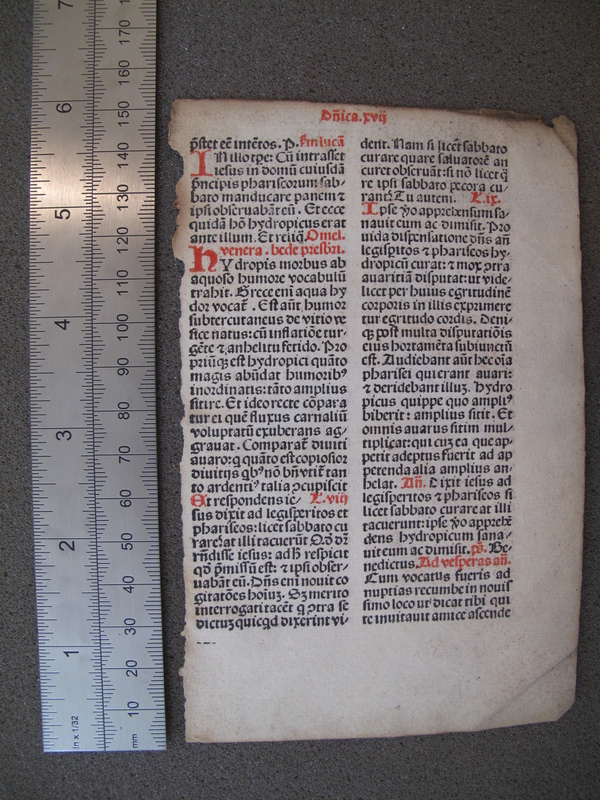 Dñica.xvij
p̄stet eē intētos. P. Fm lucā
IN illo tpe: Cū intrasset
iesus in domū cuiusdā
principis phariseorum sab-
bato manducare panem ⁊
ipsi obseruabāt eū. Et ecce
quidā hō hydropicus erat
ante illum. Et reliq̄. Omel.
venera. bede presbri.
HYdropis morbus ab
aquoso humore vocabulū
trahit. Grece enī aqua hy
dor vocat̄. Est aūt humor
subtercutaneus de vitio ve
sice natus: cū inflatiōe tur-
gēte ⁊ anhelitu fetido. Pro
priūqꝫ est hydropici quāto
magis abūdat humoribꝰ
inordinatis: tāto amplius
sitire. Et ideo recte cōpara
tur ei quē fluxus carnaliū
voluptatū exuberans ag-
grauat. Comparat̄ diuiti
auaro: q̄ quāto est copiosior
diuitijs qbꝰ nō bn̄ vtit̄ tan
to ardentiꝰ talia ꝯcupiscit
Et respondens ie- L. viij
sus dixit ad legisperitos et
phariseos: licet sabbato cu
rare? at illi tacuerūt Qd̄ dr̄
rn̄disse iesus: ad h̄ respicit
qd̄ p̄missū est: ⁊ ipsi obser-
uabāt eū. Dn̄s enī nouit co
gitatōes hoīuꝫ. Sꝫ merito
interrogati tacēt q̄ ꝯtra se
dictuꝫ quicqd dixerint vi-
derit. Nam si licet sabbato
curare quare saluatorē an
curet obseruāt: si nō licet q̄
re ipsi sabbato pecora cu-
rant? Tu autem. L. ix.
Ipse ꝟo apprehensum sa-
nauit eum ac dimisit. Pro
uida dispensatione dn̄s añ
legisp̄itos ⁊ phariseos hy-
dropicū curat: ⁊ mox ꝯtra
auaritiā disputat: vt vide-
licet per huius egritudinē
corporis in illis exprimere
tur egritudo cordis. Deni-
qꝫ post multa disputatiōis
eius hortamēta subiunctū
est. Audiebant aūt hec oīa
pharisei qui erant auari:
⁊ deridebant illuꝫ. Hydro
picus quippe quo ampliꝰ
biberit: amplius sitit. Et
omnis auarus sitim mul-
tiplicat: qui cuꝫ ea que ap-
petit adeptus fuerit ad ap
petenda alia amplius an-
helat. Añ. Dixit iesus ad
legisperitos ⁊ phariseos si
licet sabbato curare at illi
tacuerunt: ipse ꝟo apprehē
dens hydropicum sana-
uit eum ac dimisit. ps̄. Be-
nedictus. Ad vesperas añ.
Cum vocatus fueris ad
nuptias recumbe in nouis
simo loco vt dicat tibi qui
te inuitauit amice ascende